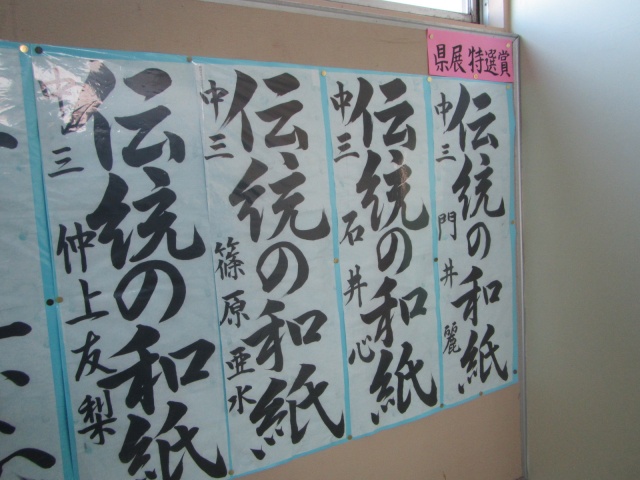 県展 特選賞
伝統の和紙
中三 門井麗
伝統の和紙
中三 石井心
伝統の和紙
中三 篠原亜水
伝統の和紙
中三 仲上友梨